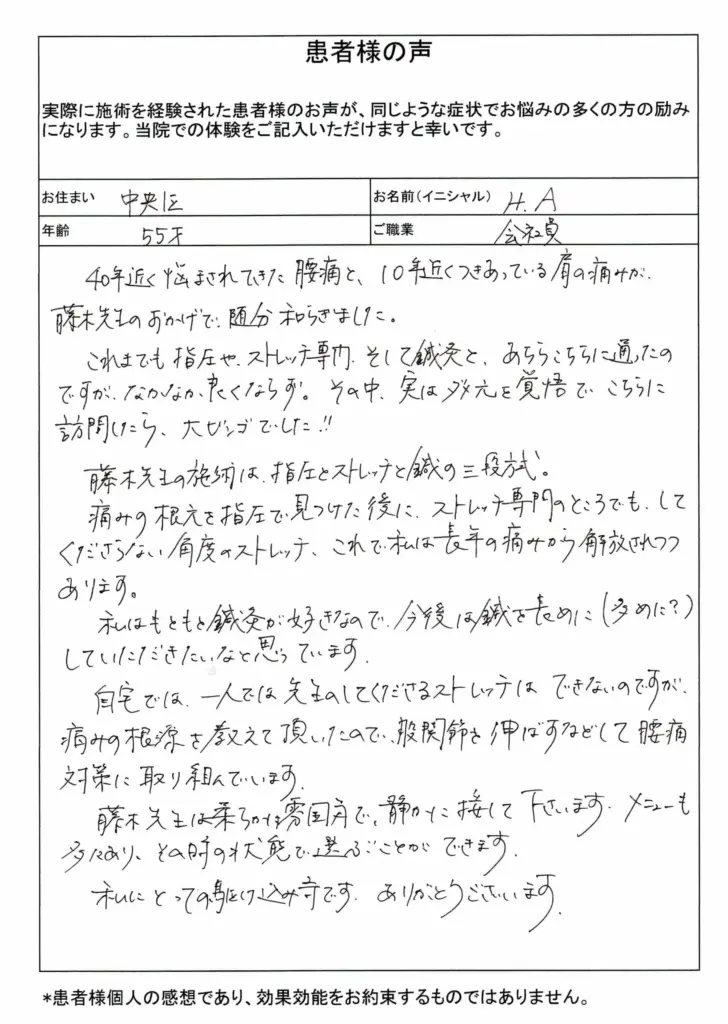 患者様の声
実際に施術を経験された患者様のお声が、同じような症状でお悩みの多くの方の励み
になります。当院での体験をご記入いただけますと幸いです。
お住まい 中央区 お名前（イニシャル） H. A
年齢 55才 ご職業 会社員
40年近く悩まされてきた腰痛と、10年近くつきあっている肩の痛みが、
藤木先生のおかげで、随分和らぎました。
これまでも指圧や、ストレッチ専門、そして鍼灸と、あちらこちらに通ったの
ですが、なかなか良くならず。その中、実はダメ元を覚悟で、こちらに
訪問したら、大ビンゴでした!!
藤木先生の施術は、指圧とストレッチと鍼の三段式。
痛みの根元を指圧で見つけた後に、ストレッチ専門のところでも、して
くださらない角度のストレッチ、これで私は長年の痛みから解放されつつ
あります。
私はもともと鍼灸が好きなので、今後は鍼を長めに(多めに?)
していただきたいなと思っています.
自宅では、一人では先生のしてくださるストレッチは できないのですが、
痛みの根源を教えて頂いたので、股関節を伸ばすなどして腰痛
対策に取り組んでいます.
藤木先生は柔らかな雰囲気で、静かに接して下さいます. メニューも
多々あり、その時の状態で選ぶことができます.
私にとっての駆け込み寺です. ありがとうございます.
*患者様個人の感想であり、効果効能をお約束するものではありません。